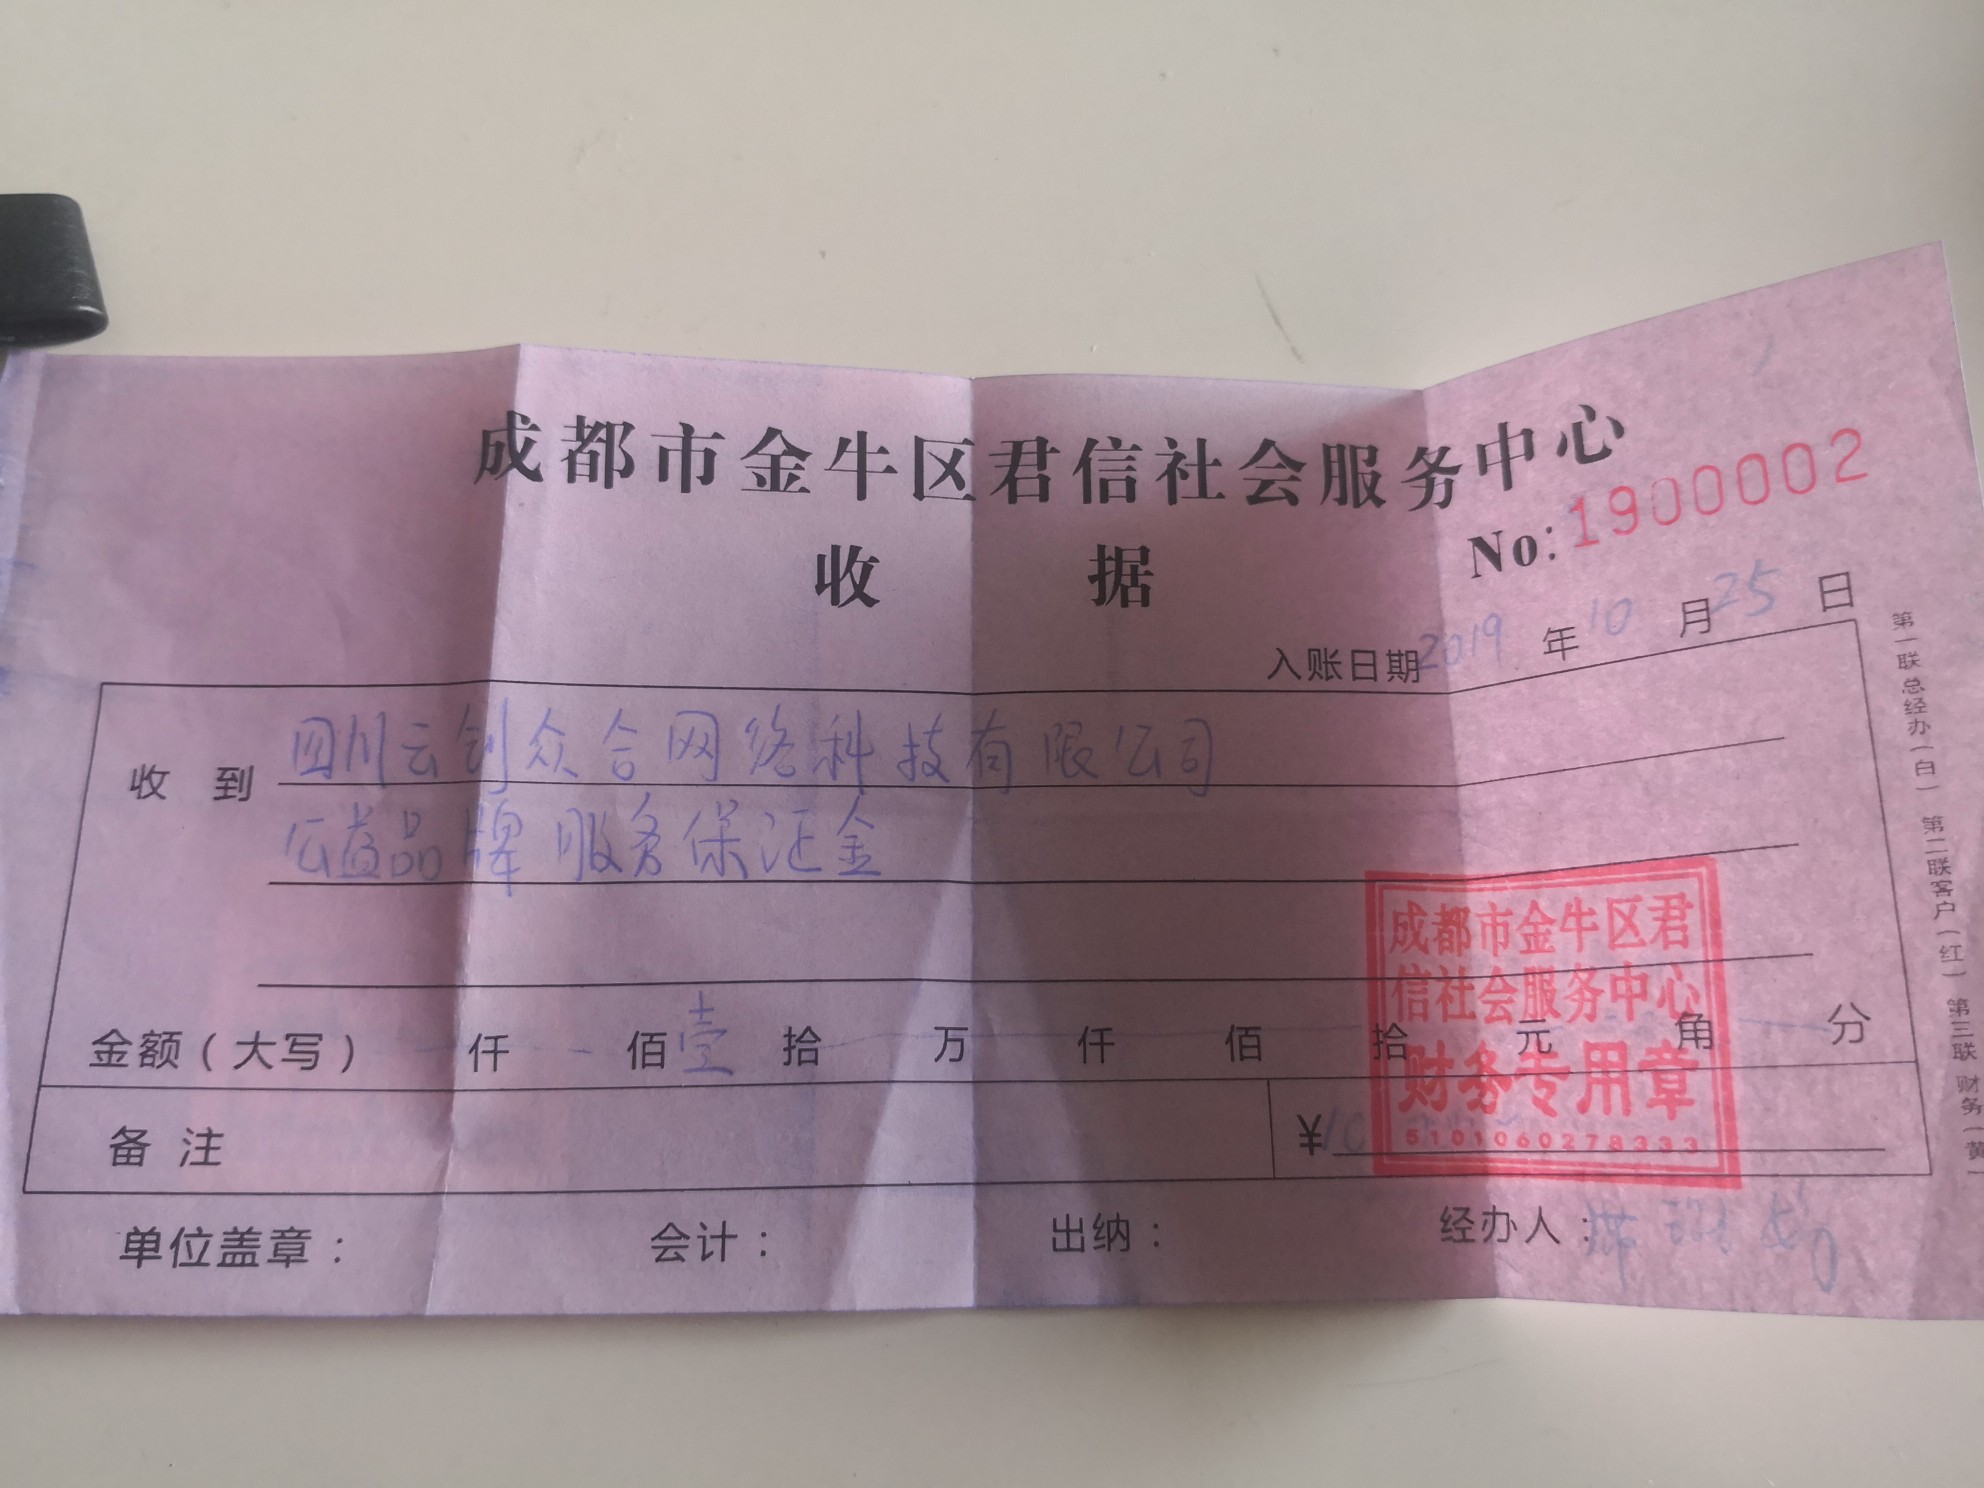 成都市金牛区君信社会服务中心
收 据
No:1900002
入账日期 2019 年 10 月 25 日
收 到 四川云创众合网络科技有限公司
公益品牌服务保证金
金额(大写) 仟 佰 壹 拾 万 仟 佰 拾 元 角 分
备 注
¥10
成都市金牛区君
信社会服务中心
财务专用章
5101060278333
单位盖章: 会计: 出纳: 经办人:
第一联总经办(白) 第二联客户(红) 第三联财务(黄